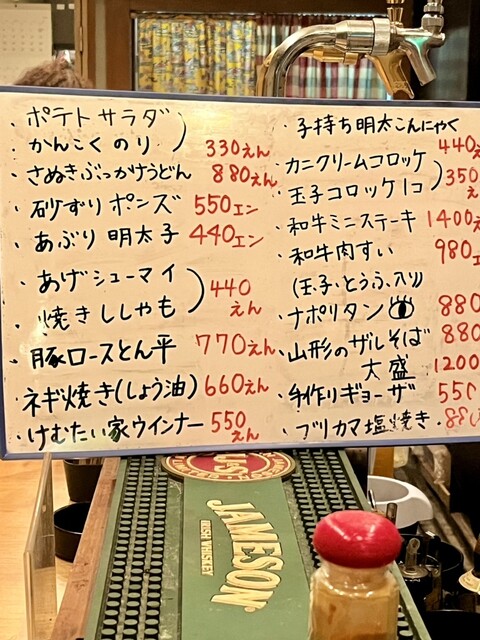 ・ポテトサラダ
・かんこくのり 330えん
・さぬきぶっかけうどん 880えん
・砂ずりポンズ 550エン
・あぶり明太子 440エン
・あげシューマイ
・焼きししゃも 440えん
・豚ロースとん平 770えん
・ネギ焼き(しょう油) 660えん
・けむたい家ウインナー 550えん
・子持ち明太こんにゃく 440え
・カニクリームコロッケ
・玉子コロッケ1コ 350え
・和牛ミニステーキ 1400え
・和牛肉すい 980エ
(玉子、とうふ、入り)
・ナポリタン 880
・山形のザルそば 880
大盛 1200
・手作りギョーザ 550
・ブリカマ塩焼き・880
JAMESON
IRISH WHISKEY